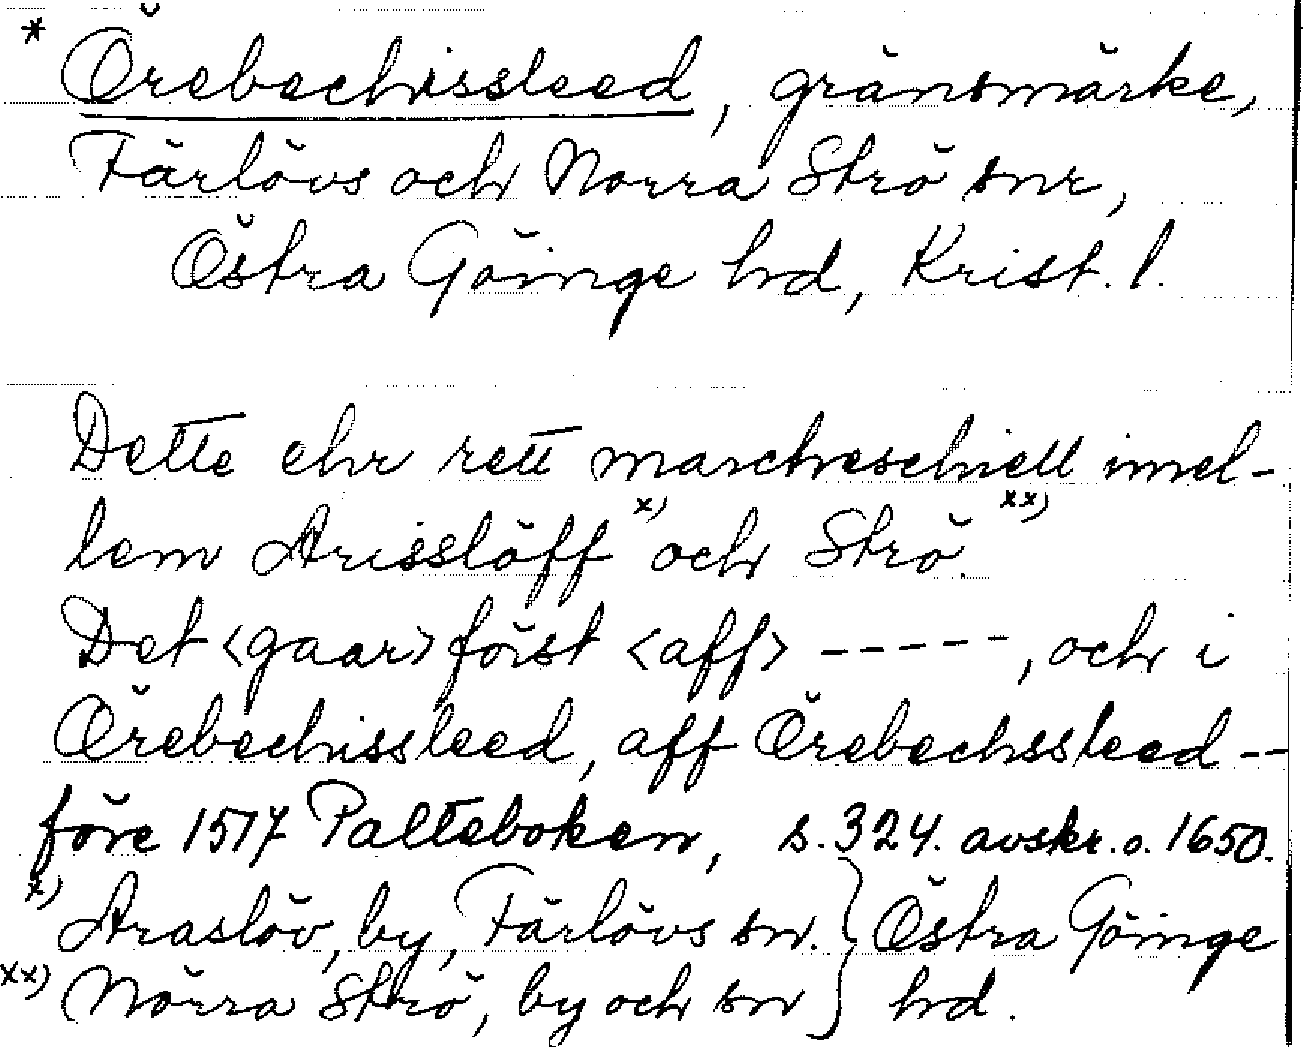 * Örebechissleed, gränsmärke,
Färlövs och Norra Strö snr,
Östra Göinge hd, Krist. l.
Dette ehr rett marcheschiell imel-
lem Arisslöff x) och Strö. xx)
Det <gaar> först <aff> -----, och i
Örebechissleed, aff Örebechssleed --
före 1517 Palteboken, s. 324. avskr. o. 1650.
x) Araslöv, by, Färlövs sn. } Östra Göinge
xx) Norra Strö, by och sn } hd.